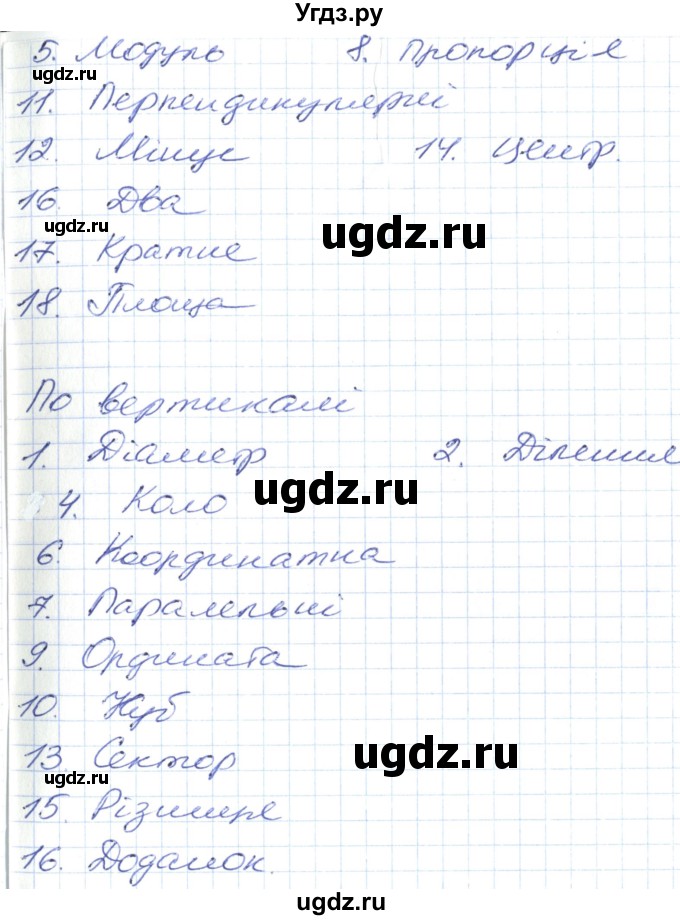 Угдз.ру
5. Модуль 8. Пропорція
ugdz.ru
11. Перпендикулярні
12. Мінус 14. Центр.
16. Два
ugdz.ru
ugdz.ru
17. Кратне
18. Площа
По вертикалі
1. Діаметр 2. Ділення
ugdz.ru
4. Коло
6. Координатна
7. Паралельні
9. Ордината
10. Куб
13. Сектор
ugdz.ru
ugdz.ru
15. Різниця
16. Доданок.
ugdz.ru